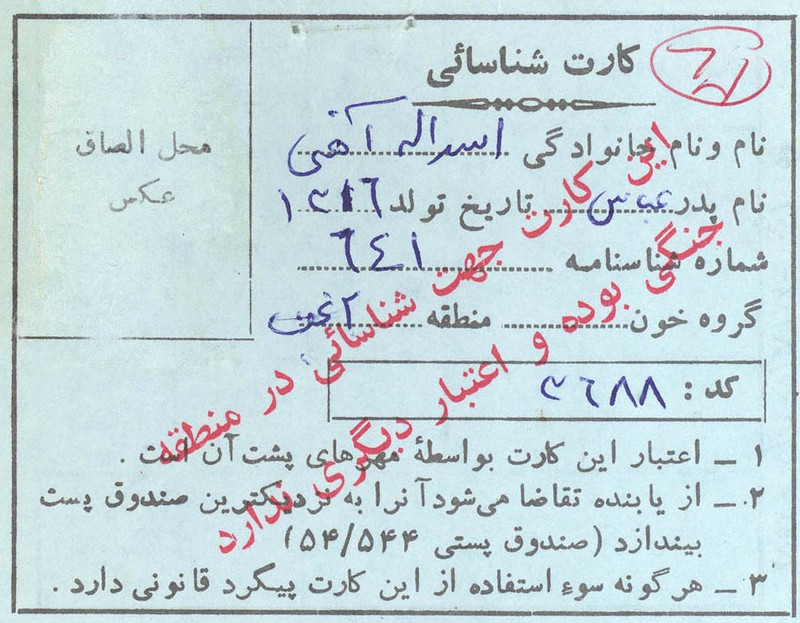 کارت شناسائی
محل الصاق
عکس
نام و نام خانوادگی اسداله آهنی
نام پدر عباس تاریخ تولد ۱۳۱۶
شماره شناسنامه ۶۴۱
گروه خون منطقه
کد : ۳۶۸۸
۱ ــ اعتبار این کارت بواسطهٔ مهرهای پشت آن است .
۲ ــ از یابنده تقاضا می‌شود آنرا به نزدیکترین صندوق پست
بیندازد (صندوق پستی ۵۴/۵۴۴)
۳ ــ هرگونه سوء استفاده از این کارت پیگرد قانونی دارد .
این کارت جهت شناسائی در منطقه
جنگی بوده و اعتبار دیگری ندارد